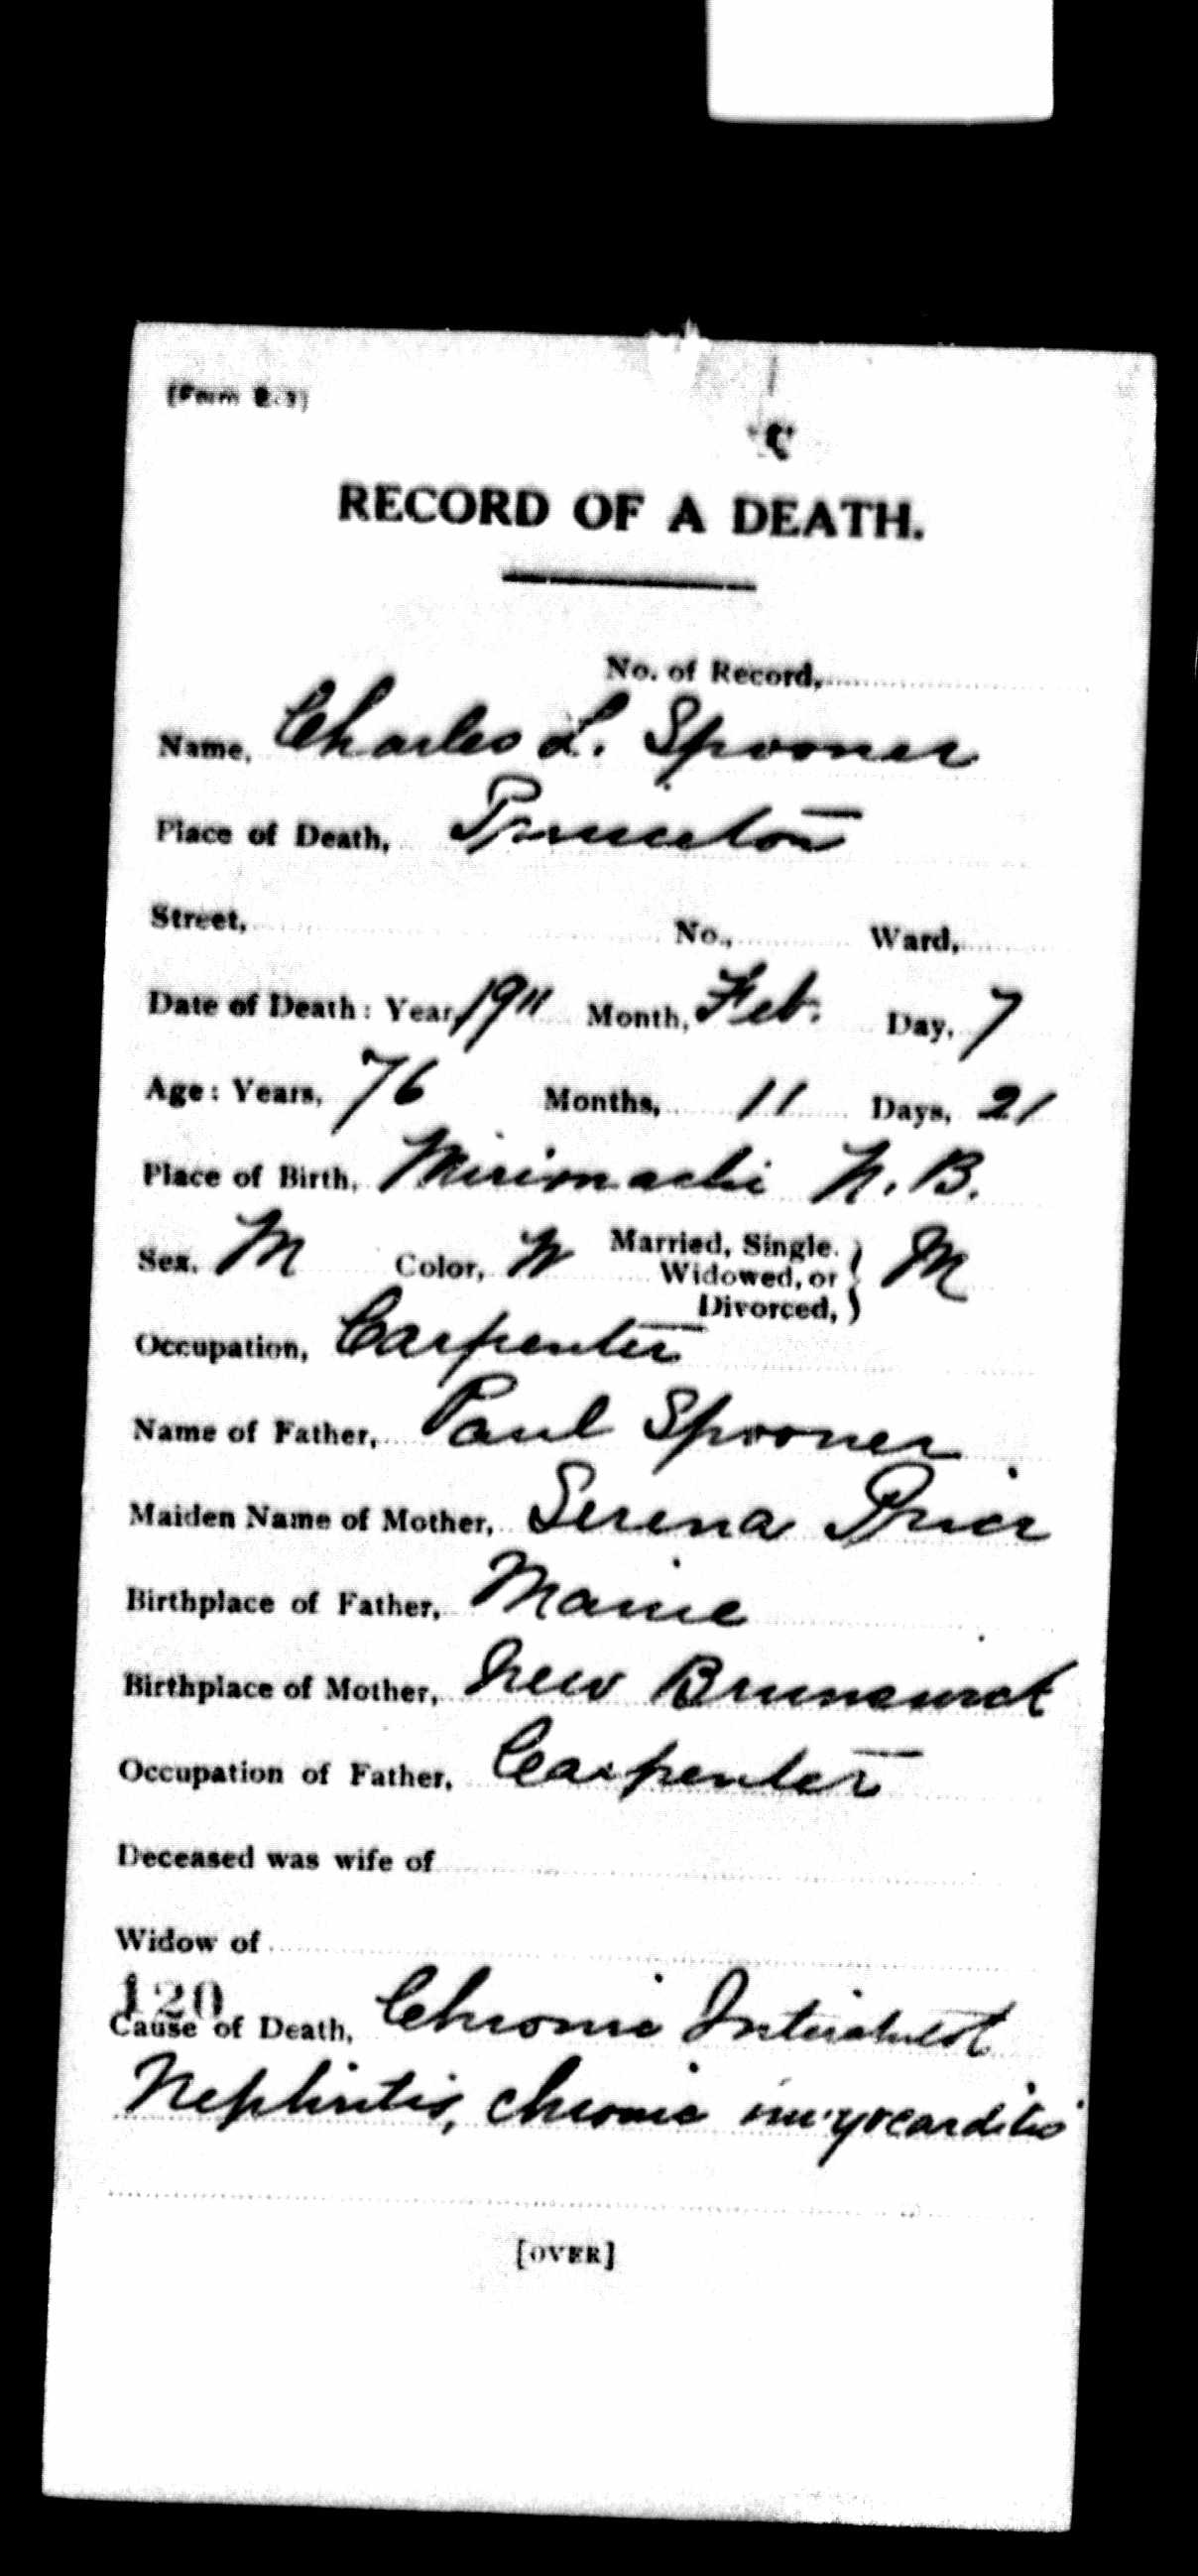 (Form R. 1)
RECORD OF A DEATH.
No. of Record,
Name, Charles L. Spooner
Place of Death, Princeton
Street, No., Ward,
Date of Death: Year, 1911 Month, Feb. Day, 7
Age: Years, 76 Months, 11 Days, 21
Place of Birth, Mirimachi N. B.
Sex, M Color, W Married, Single, Widowed, or Divorced, } M
Occupation, Carpenter
Name of Father, Paul Spooner
Maiden Name of Mother, Serena Price
Birthplace of Father, Maine
Birthplace of Mother, New Brunswick
Occupation of Father, Carpenter
Deceased was wife of
Widow of
120
Cause of Death, Chronic Interstitial
Nephritis, chronic myocarditis
[OVER]